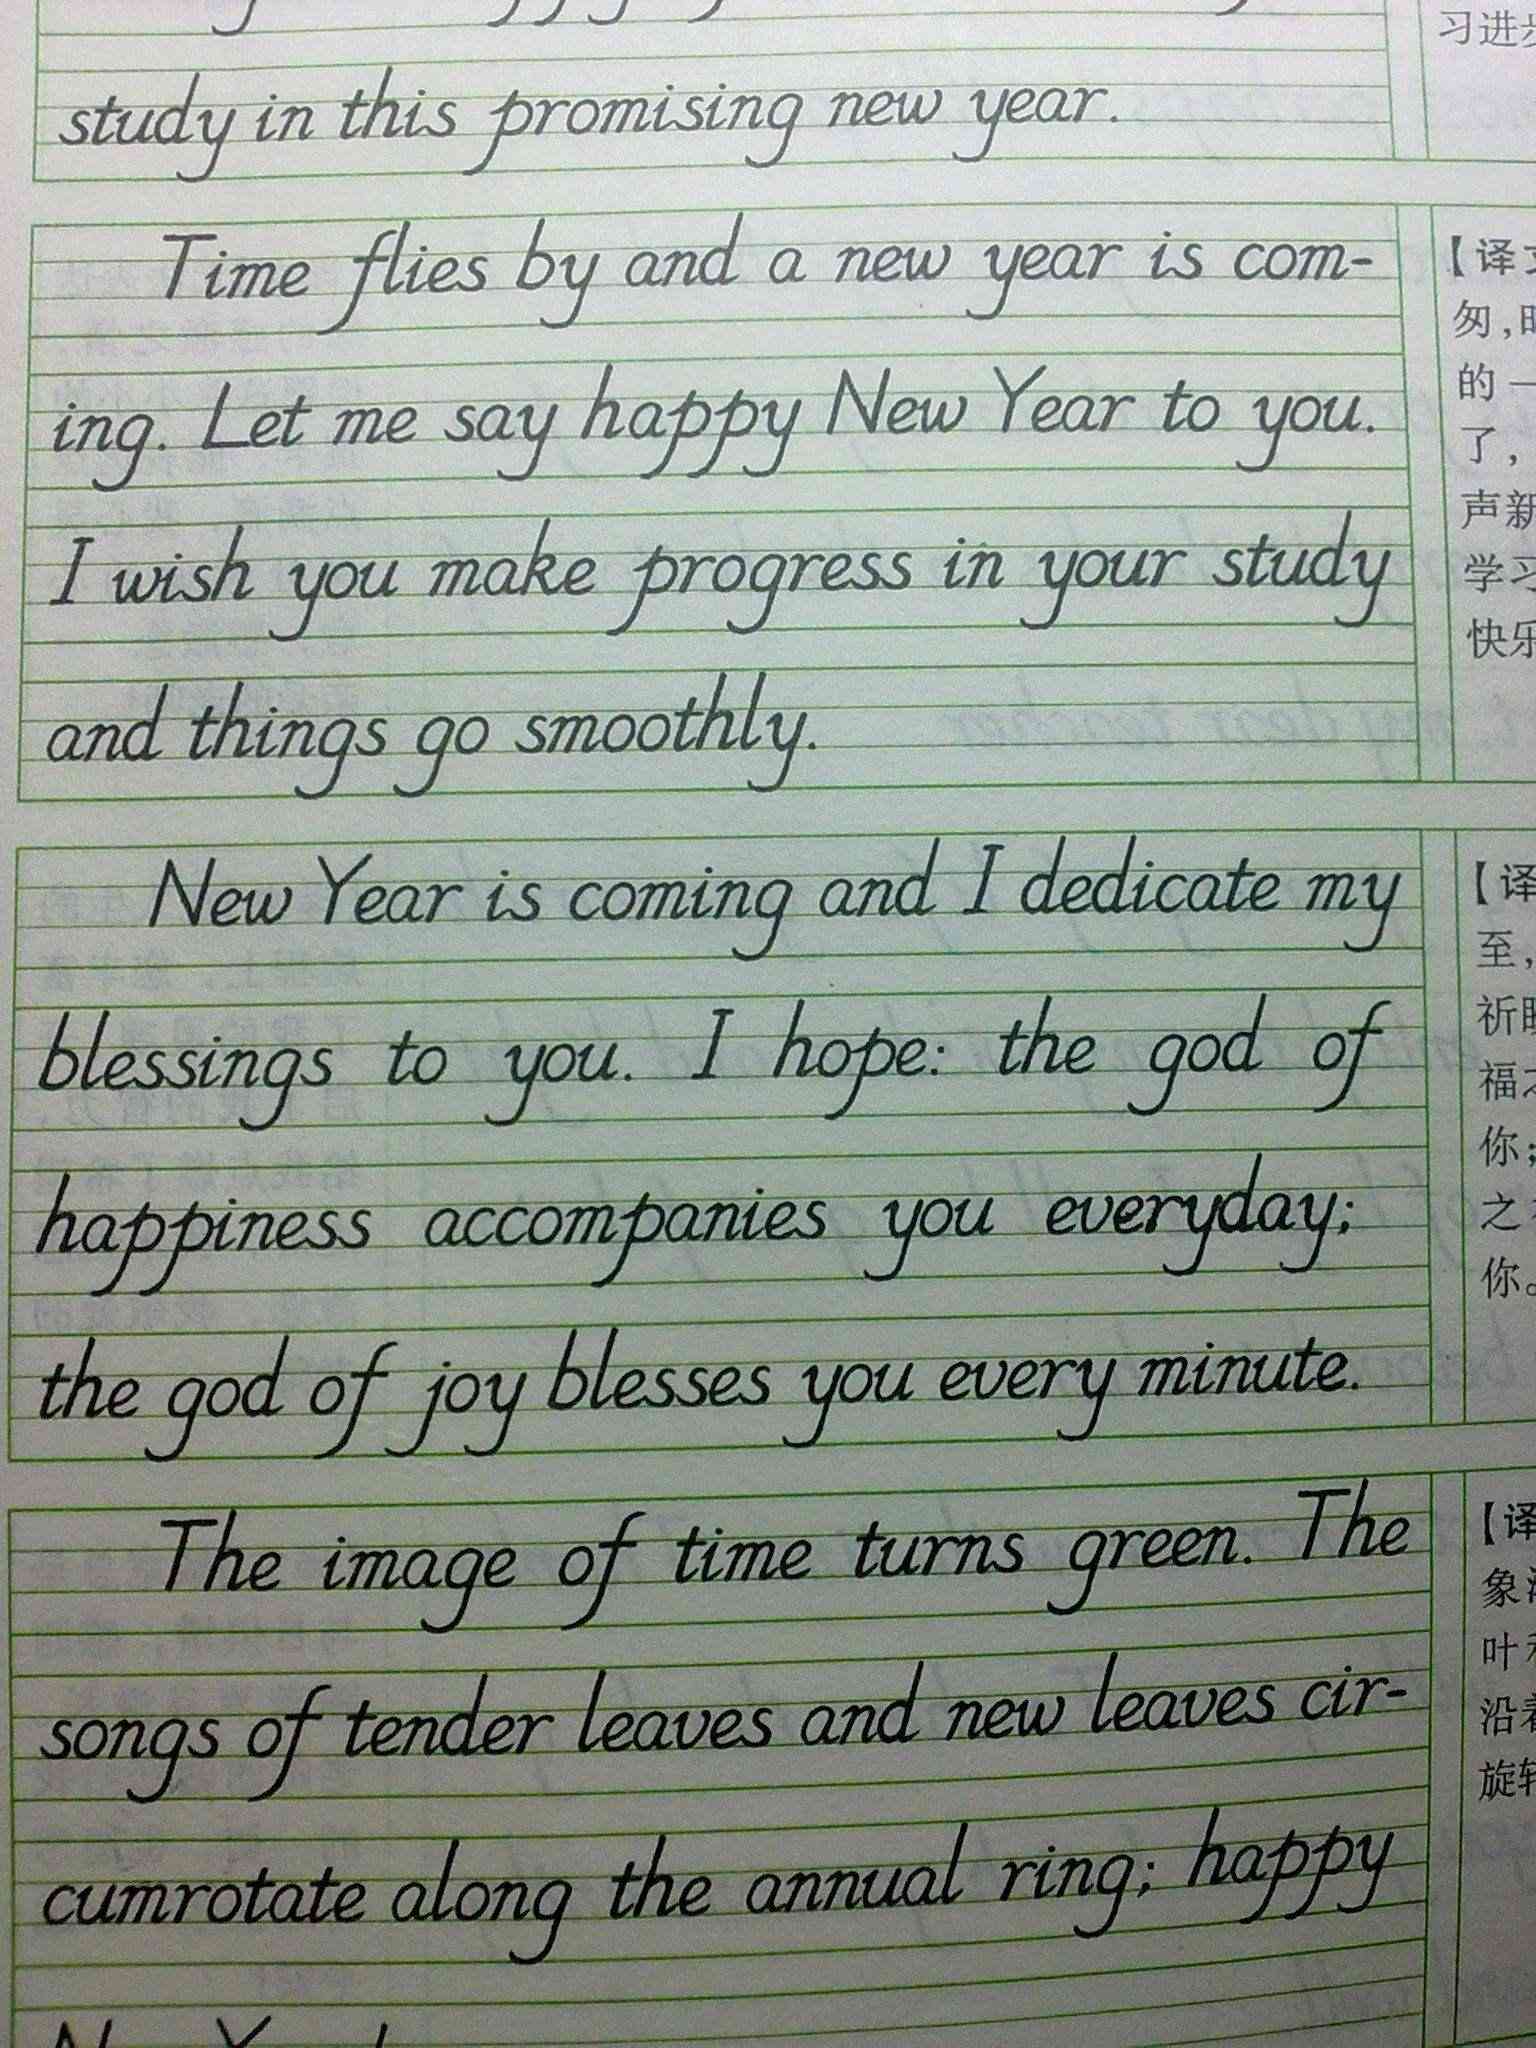 study in this promising new year.
习进
Time flies by and a new year is com-
ing. Let me say happy New Year to you.
I wish you make progress in your study
and things go smoothly.
【译文
匆,
的一
了,
声新
学习
快乐
New Year is coming and I dedicate my
blessings to you. I hope: the god of
happiness accompanies you everyday;
the god of joy blesses you every minute.
【译
至,
祈
福
你;
之
你。
The image of time turns green. The
songs of tender leaves and new leaves cir-
cumrotate along the annual ring; happy
【译
象
叶
沿着
旋转